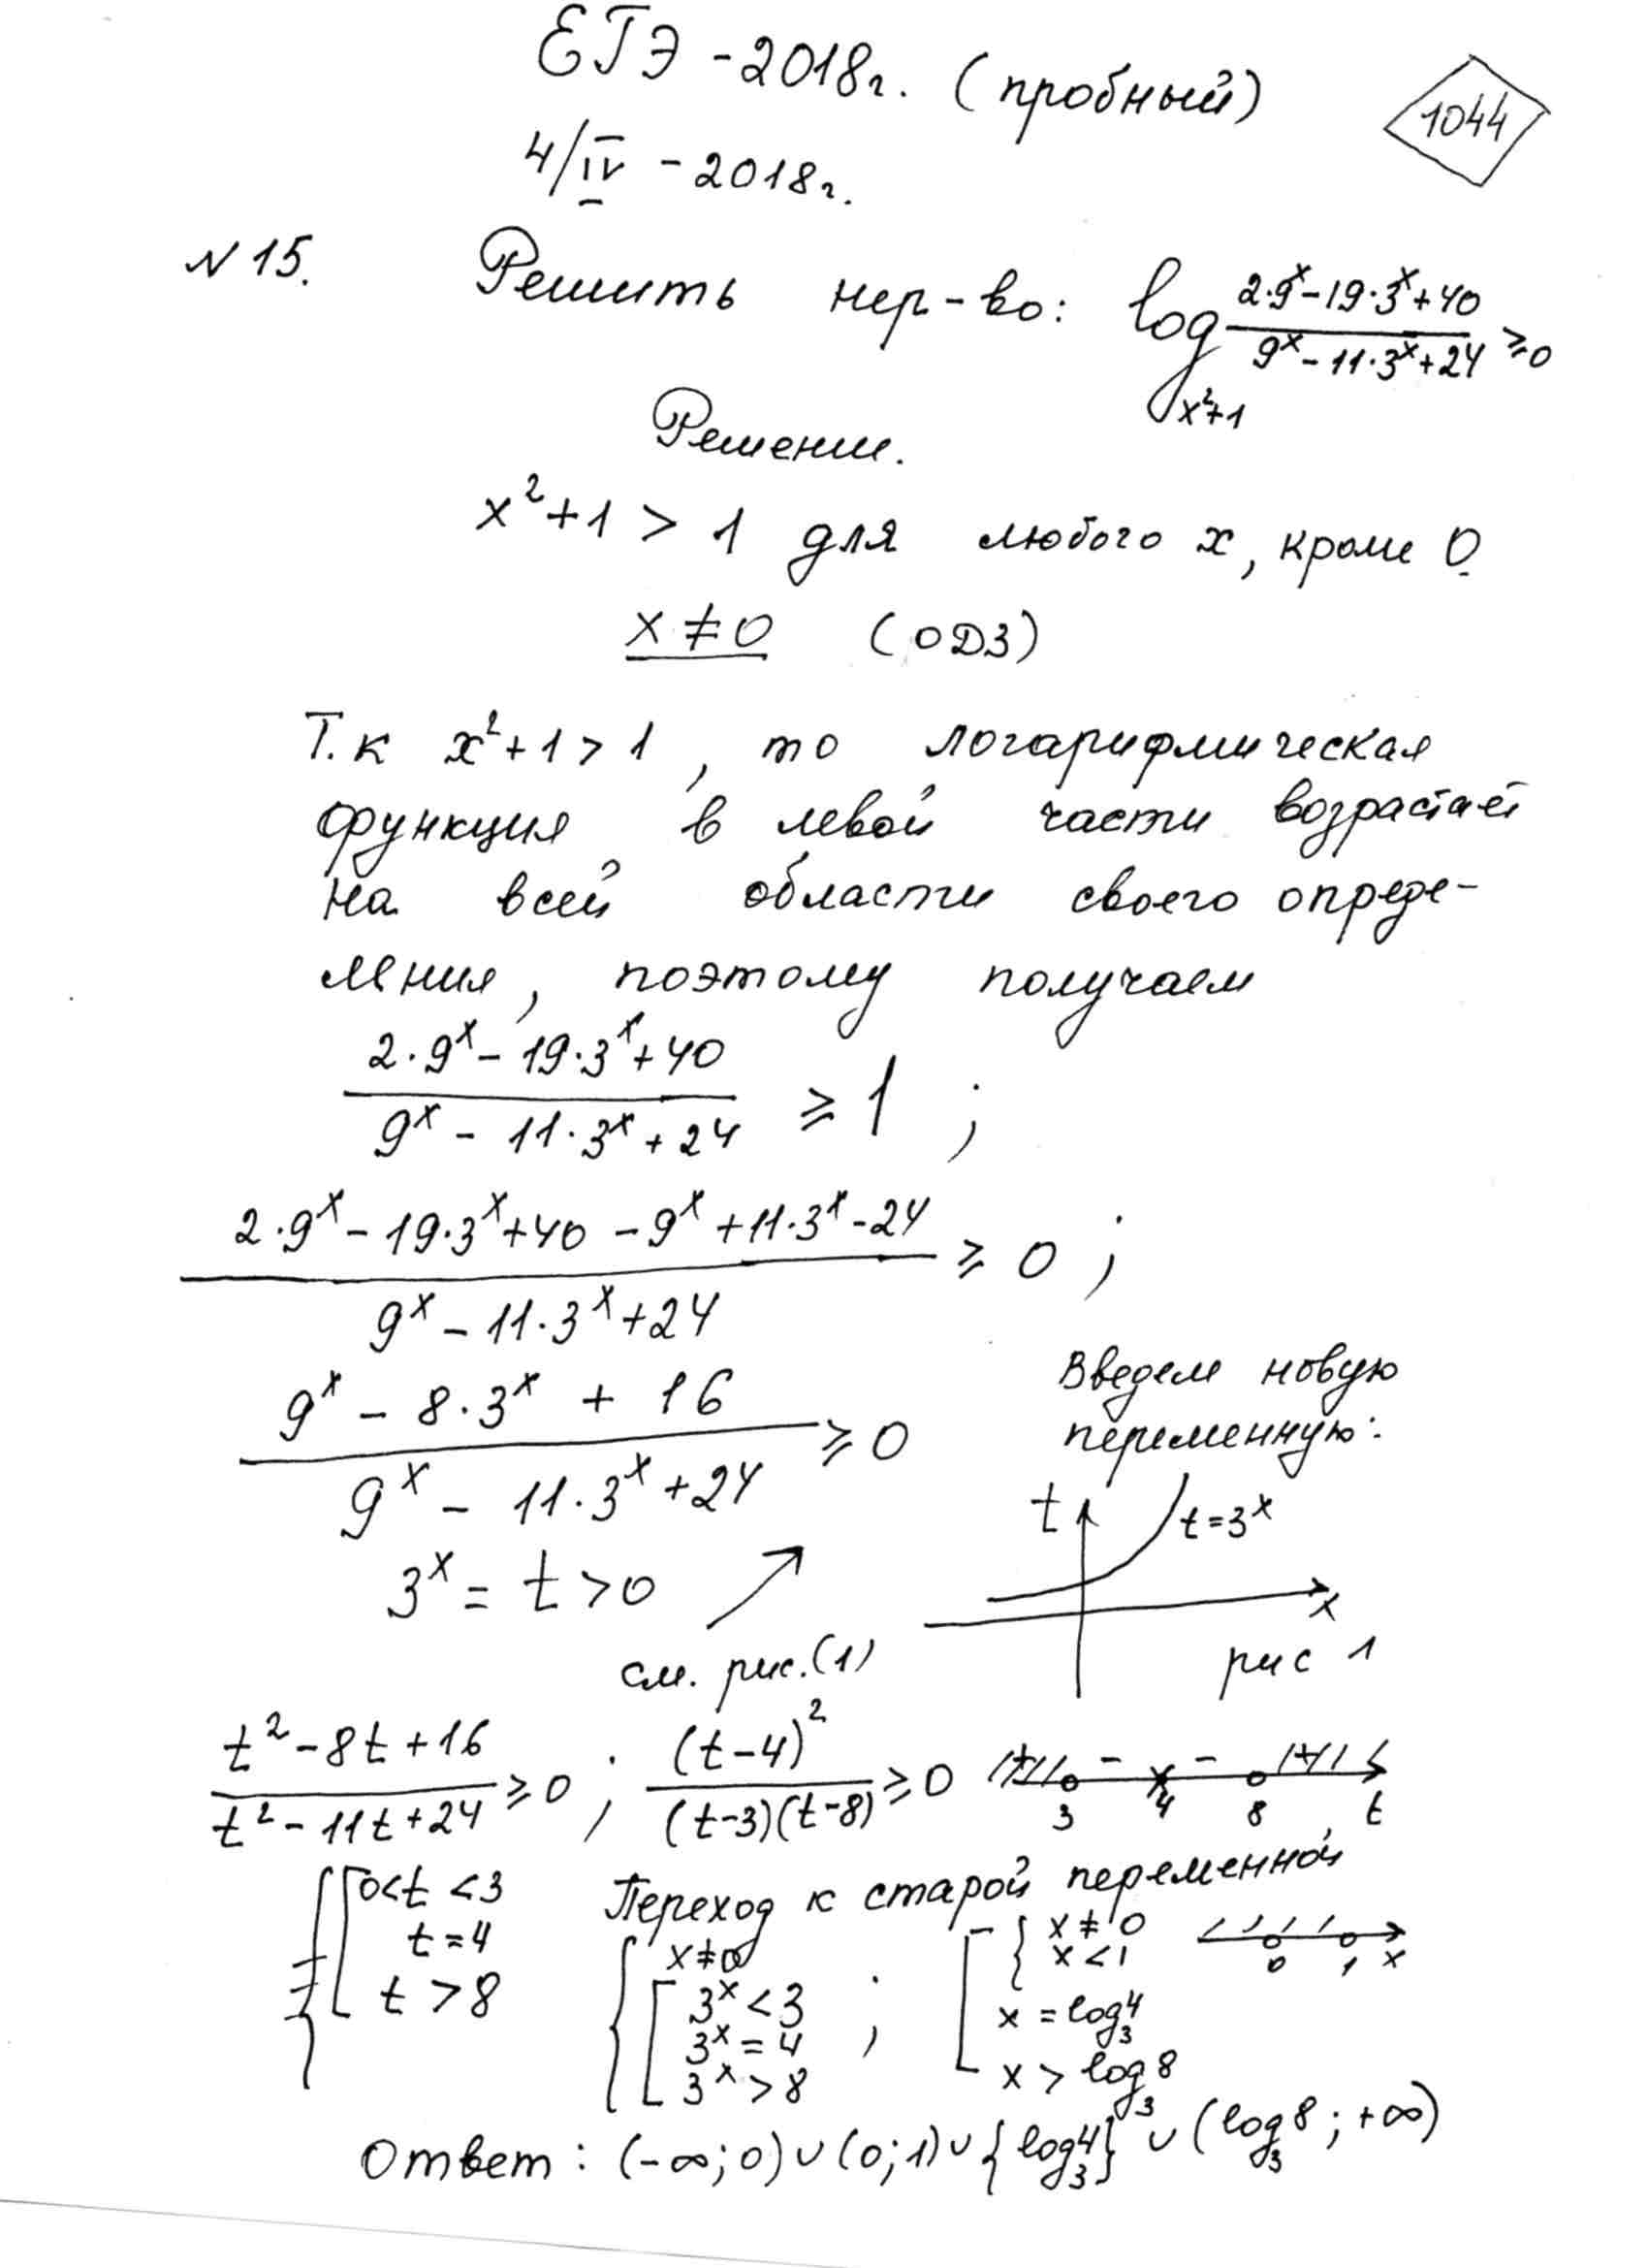 ЕГЭ - 2018г. (пробный)
1044
4/IV - 2018г.
N 15. Решить нер-во: log_{x²+1} (2·9^x - 19·3^x + 40)/(9^x - 11·3^x + 24) ≥ 0
Решение.
x² + 1 > 1 для любого x, кроме 0.
x ≠ 0 (ОДЗ)
Т.к x² + 1 > 1, то логарифмическая
функция в левой части возрастает
на всей области своего опреде-
ления, поэтому получаем
(2·9^x - 19·3^x + 40)/(9^x - 11·3^x + 24) ≥ 1 ;
(2·9^x - 19·3^x + 40 - 9^x + 11·3^x - 24)/(9^x - 11·3^x + 24) ≥ 0 ;
(9^x - 8·3^x + 16)/(9^x - 11·3^x + 24) ≥ 0
Введем новую
переменную:
t t = 3^x
x
3^x = t > 0
см. рис.(1) рис 1
(t² - 8t + 16)/(t² - 11t + 24) ≥ 0 ; (t-4)²/((t-3)(t-8)) ≥ 0
+ - - +
3 4 8 t
0 < t < 3
t = 4
t > 8
Переход к старой переменной
x ≠ 0
3^x < 3
3^x = 4
3^x > 8
;
x ≠ 0
x < 1
0 1 x
x = log₃4
x > log₃8
Ответ: (-∞; 0) ∪ (0; 1) ∪ {log₃4} ∪ (log₃8; +∞)